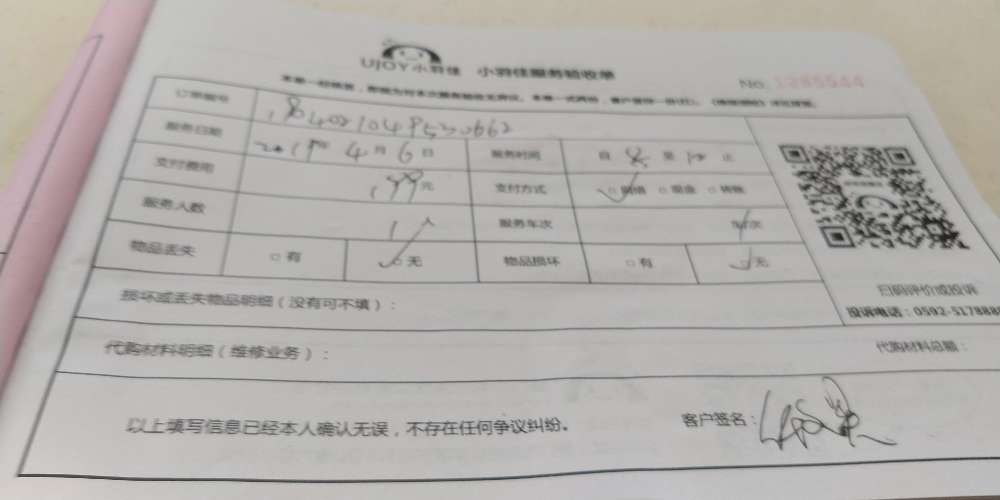 UJOY小羽佳 小羽佳服务验收单
No. 1285544
订单编号
服务日期 2019年 4月 6日 服务时间 自 8 至 10 止
支付费用 199元 支付方式 □ 网络 □ 现金 □ 转账
服务人数 1人 服务车次 车次
物品丢失 □ 有 □ 无 物品损坏 □ 有 □ 无
损坏或丢失物品明细（没有可不填）：
扫码评价或投诉
投诉电话：0592-517888
代购材料明细（维修业务）： 代购材料总额：
以上填写信息已经本人确认无误，不存在任何争议纠纷。 客户签名：